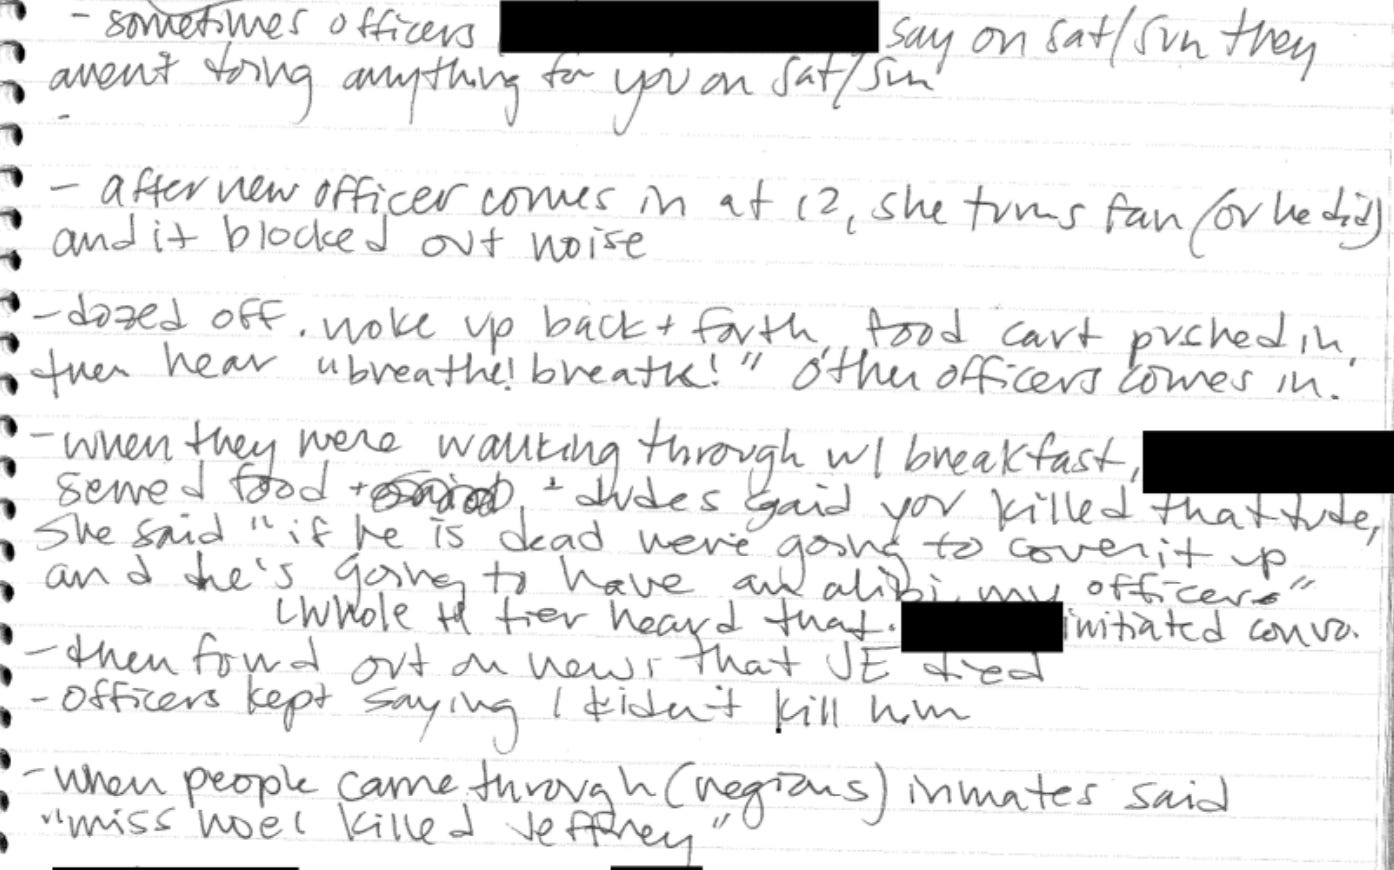 - sometimes officers say on sat/sun they
aren't doing anything for you on sat/sun
-
- after new officer comes in at 12, she turns fan (or he did)
and it blocked out noise
- dozed off. woke up back + forth, food cart pushed in,
then hear "breathe! breathe!" Other officers comes in.
- when they were walking through w/ breakfast,
served food + + dudes said you killed that dude,
she said "if he is dead we're going to cover it up
and he's going to have an alibi, my officers"
Whole tier heard that. initiated convo.
- then found out on news that JE died
- Officers kept saying I didn't kill him
- when people came through (regions) inmates said
"miss Noel killed Jeffrey"